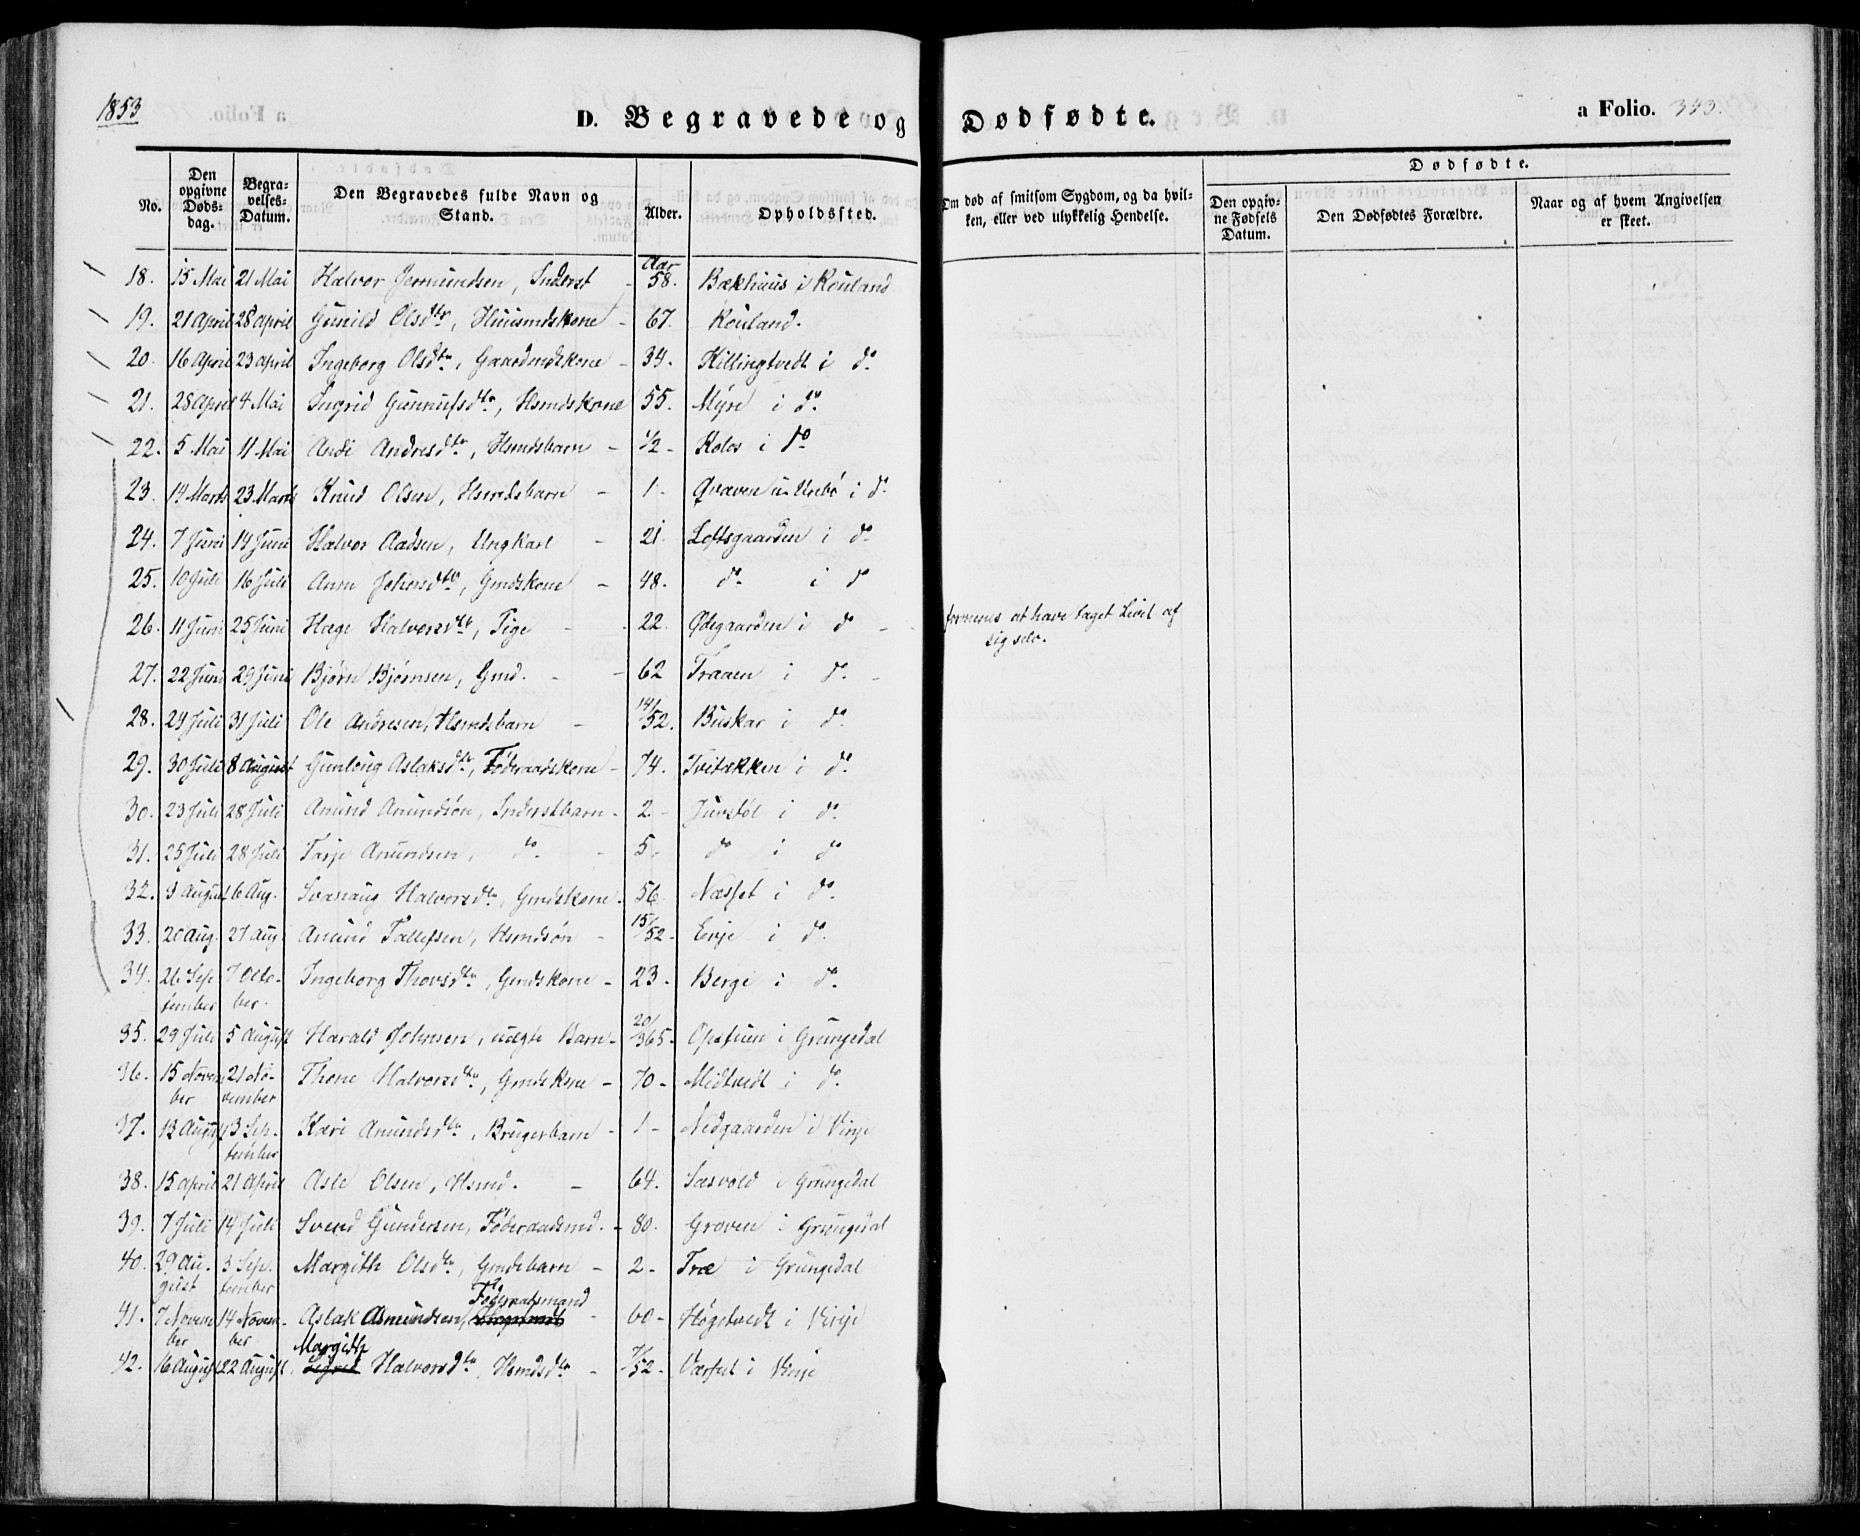 1853
D. Begravede og Dødfødte.
a Folio. 343.
No.
Den opgivne Døds-dag.
Begra-velses-Datum.
Den Begravedes fulde Navn og Stand.
Alder.
Opholdssted.
Om død af smitsom Sygdom, og da hvil-ken, eller ved ulykkelig Hendelse.
Dødfødte.
Den opgiv-ne Fødsels Datum.
Den Dødfødtes Forældre.
Naar og af hvem Angivelsen er skeet.
Aar
18. 15 Mai 21 Mai Halvor Jermundsen, Inderst - 58. Bækhuus i Rouland
19. 21 April 28 April Gunild Olsdtr, Huusmdskone - 67. Rouland.
20. 16 April 23 April Ingeborg Olsdtr, Gaardmdskone - 34. Killingtvedt i do
21. 28 April 4 Mai Ingrid Gunnufsdtr, Hsmdskone 55. Myre i do
22. 5 Mai 11 Mai Andi Andresdtr, Hsmdsbarn - 1/2 - Kolos i do
23. 14 Marts 23 Marts Knud Olsen, Hsmdsbarn - 1. i do
24. 7 Juni 14 Juni Halvor Aadsen, Ungkarl - 21. Loftsgaarden i do
25. 10 Juli 16 Juli Anne Johansdtr, Gmdskone - 48. do i do
26. 11 Juni 25 Juni Hæge Halvorsdtr, Pige - 22. Ødegaarden i do - formenes at have taget Livet af
sig selv.
27. 22 Juni 29 Juni Bjørn Bjørnsen, Gmd. - 62 Traaen i do -
28. 24 Juli 31 Juli Ole Andresen, Hsmdsbarn - 14/52. Buskar i do
29. 30 Juli 8 August Gunloug Aslaksdtr, Føderaadskone - 74. Tvitækken i do
30. 23 Juli 28 Juli Anund Anundsøn, Inderstbarn - 2 - Juvstøl i do
31. 25 Juli 28 Juli Tarje Anundsen, do - 5 - do i do
32. 3 August 6 Aug. Svanaug Halvorsdtr, Gmdskone - 56 Næsset i do
33. 20 Aug. 27 Aug. Anund Tallefsen, Hsmdsøn - 15/52 - Evje i do
34. 26 Sep 7 Octo- Ingeborg Thorsdtr, Gmdskone - 23 - Berge i do
tember ber.
35. 29 Juli 5 August Harald Johnsen, uægte Barn - 20/365 - i Grungedal
36. 15 Novem 21 No- Thone Halvorsdtr, Gmdskone - 70 - Midtvedt i do
ber vember
37. 13 August 3 Sep- Kari Anundsdtr, Brugerbarn - 1 - Nedgaarden i Vinje
tember
38. 15 April 21 April Asle Olsen, Hsmd. - 64. i Grungedal
39. 7 Juli 14 Juli Svend Gundersen, Føderaadsmd. - 80. Groven i Grungedal
40. 29 Au- 3 Sep. Margith Olsdtr, Gmdsbarn - 2 - Træ i Grungedal
gust tember
Føderaadsmand
41. 7 Novem 14 Novem- Aslak Asmundsen, - 60 - Høgetvedt i Vinje
ber ber
Margith
42. 16 August 22 August. Sigrid Halvorsdtr, Hsmdsdtr - 7/52 - i Vinje